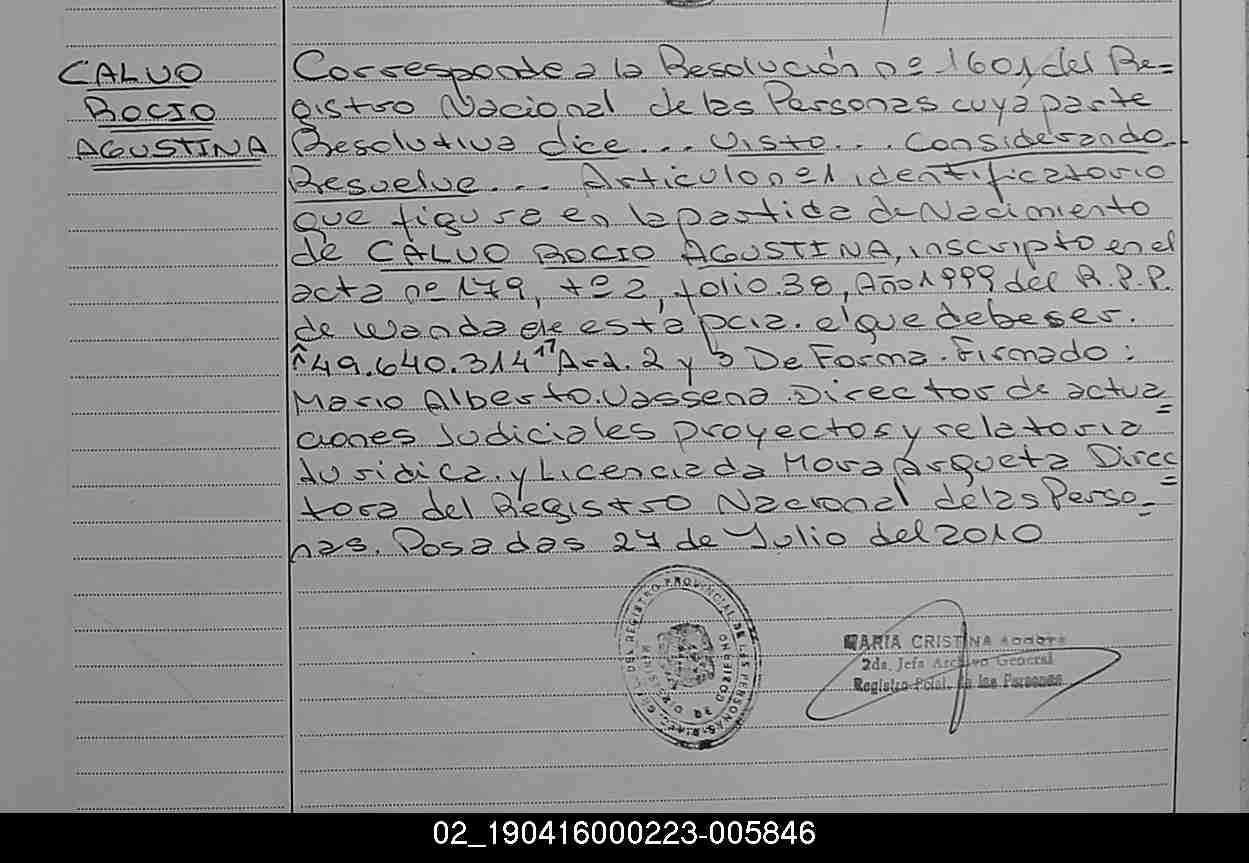 CALVO
ROCIO
AGUSTINA
Corresponde a la Resolución nº 1601 del Re=
gistro Nacional de las Personas cuya parte
Resolutiva dice... Visto... Considerando
Resuelve... Articulo nº1 identificatorio
que figura en la partida de Nacimiento
de CALVO ROCIO AGUSTINA, inscripto en el
acta nº 179, tº 2, folio.38, Año 1999 del R.P.P.
de Wanda de esta pcia. el que debe ser.
"49.640.314" Art. 2 y 3 De Forma. Firmado:
Mario Alberto. Vassena. Director de actua=
ciones Judiciales proyectos y relatoria
Juridica. y Licenciada Mora Arqueta Direc=
tora del Registro Nacional de las Perso=
nas. Posadas 27 de Julio del 2010
REGISTRO PROVINCIAL DE LAS PERSONAS
MINISTERIO DE GOBIERNO
MARIA CRISTINA
2da. Jefa Archivo General
Registro Pcial. de las Personas
02_190416000223-005846